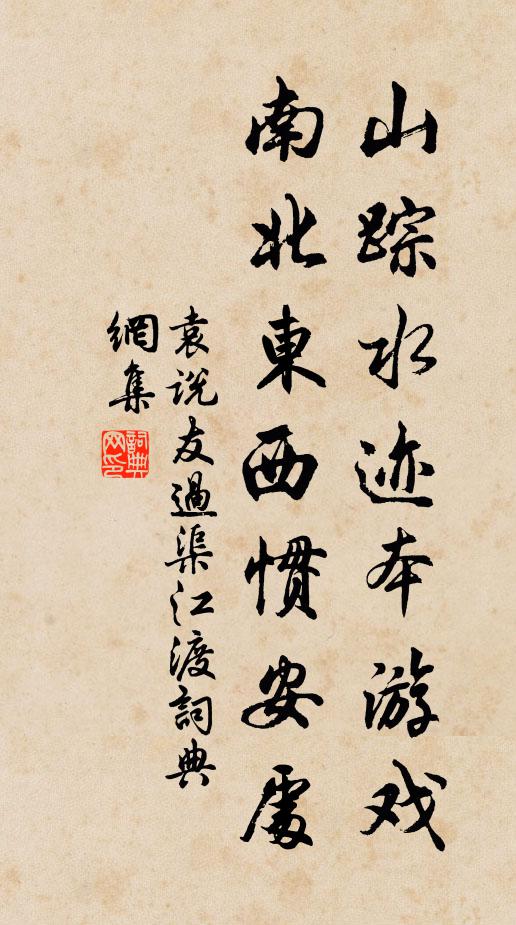 山踪水迹本游戏
南北東西慣安處
袁说友過渠江渡詞典
網集
詞典
网印